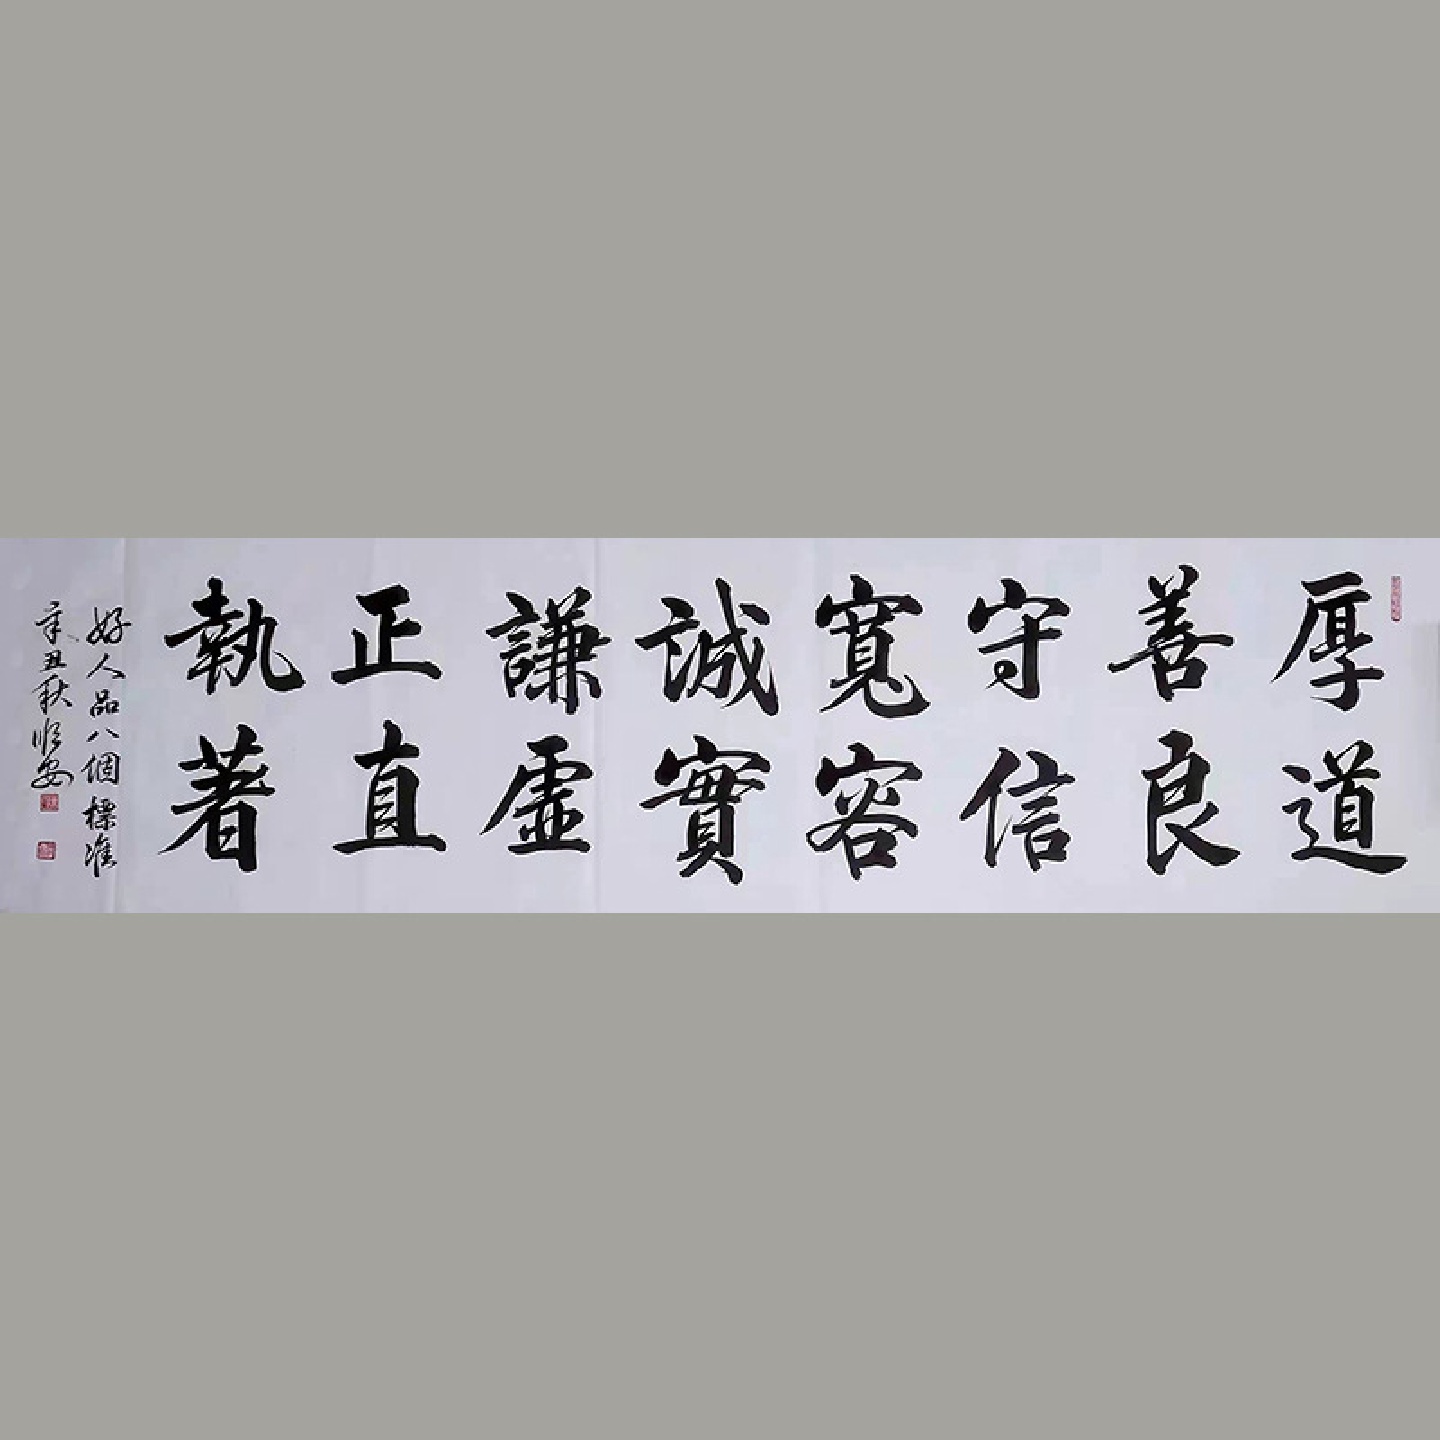 厚道
善良
守信
寬容
誠實
謙虛
正直
執著
好人品八個標準
辛丑秋順安